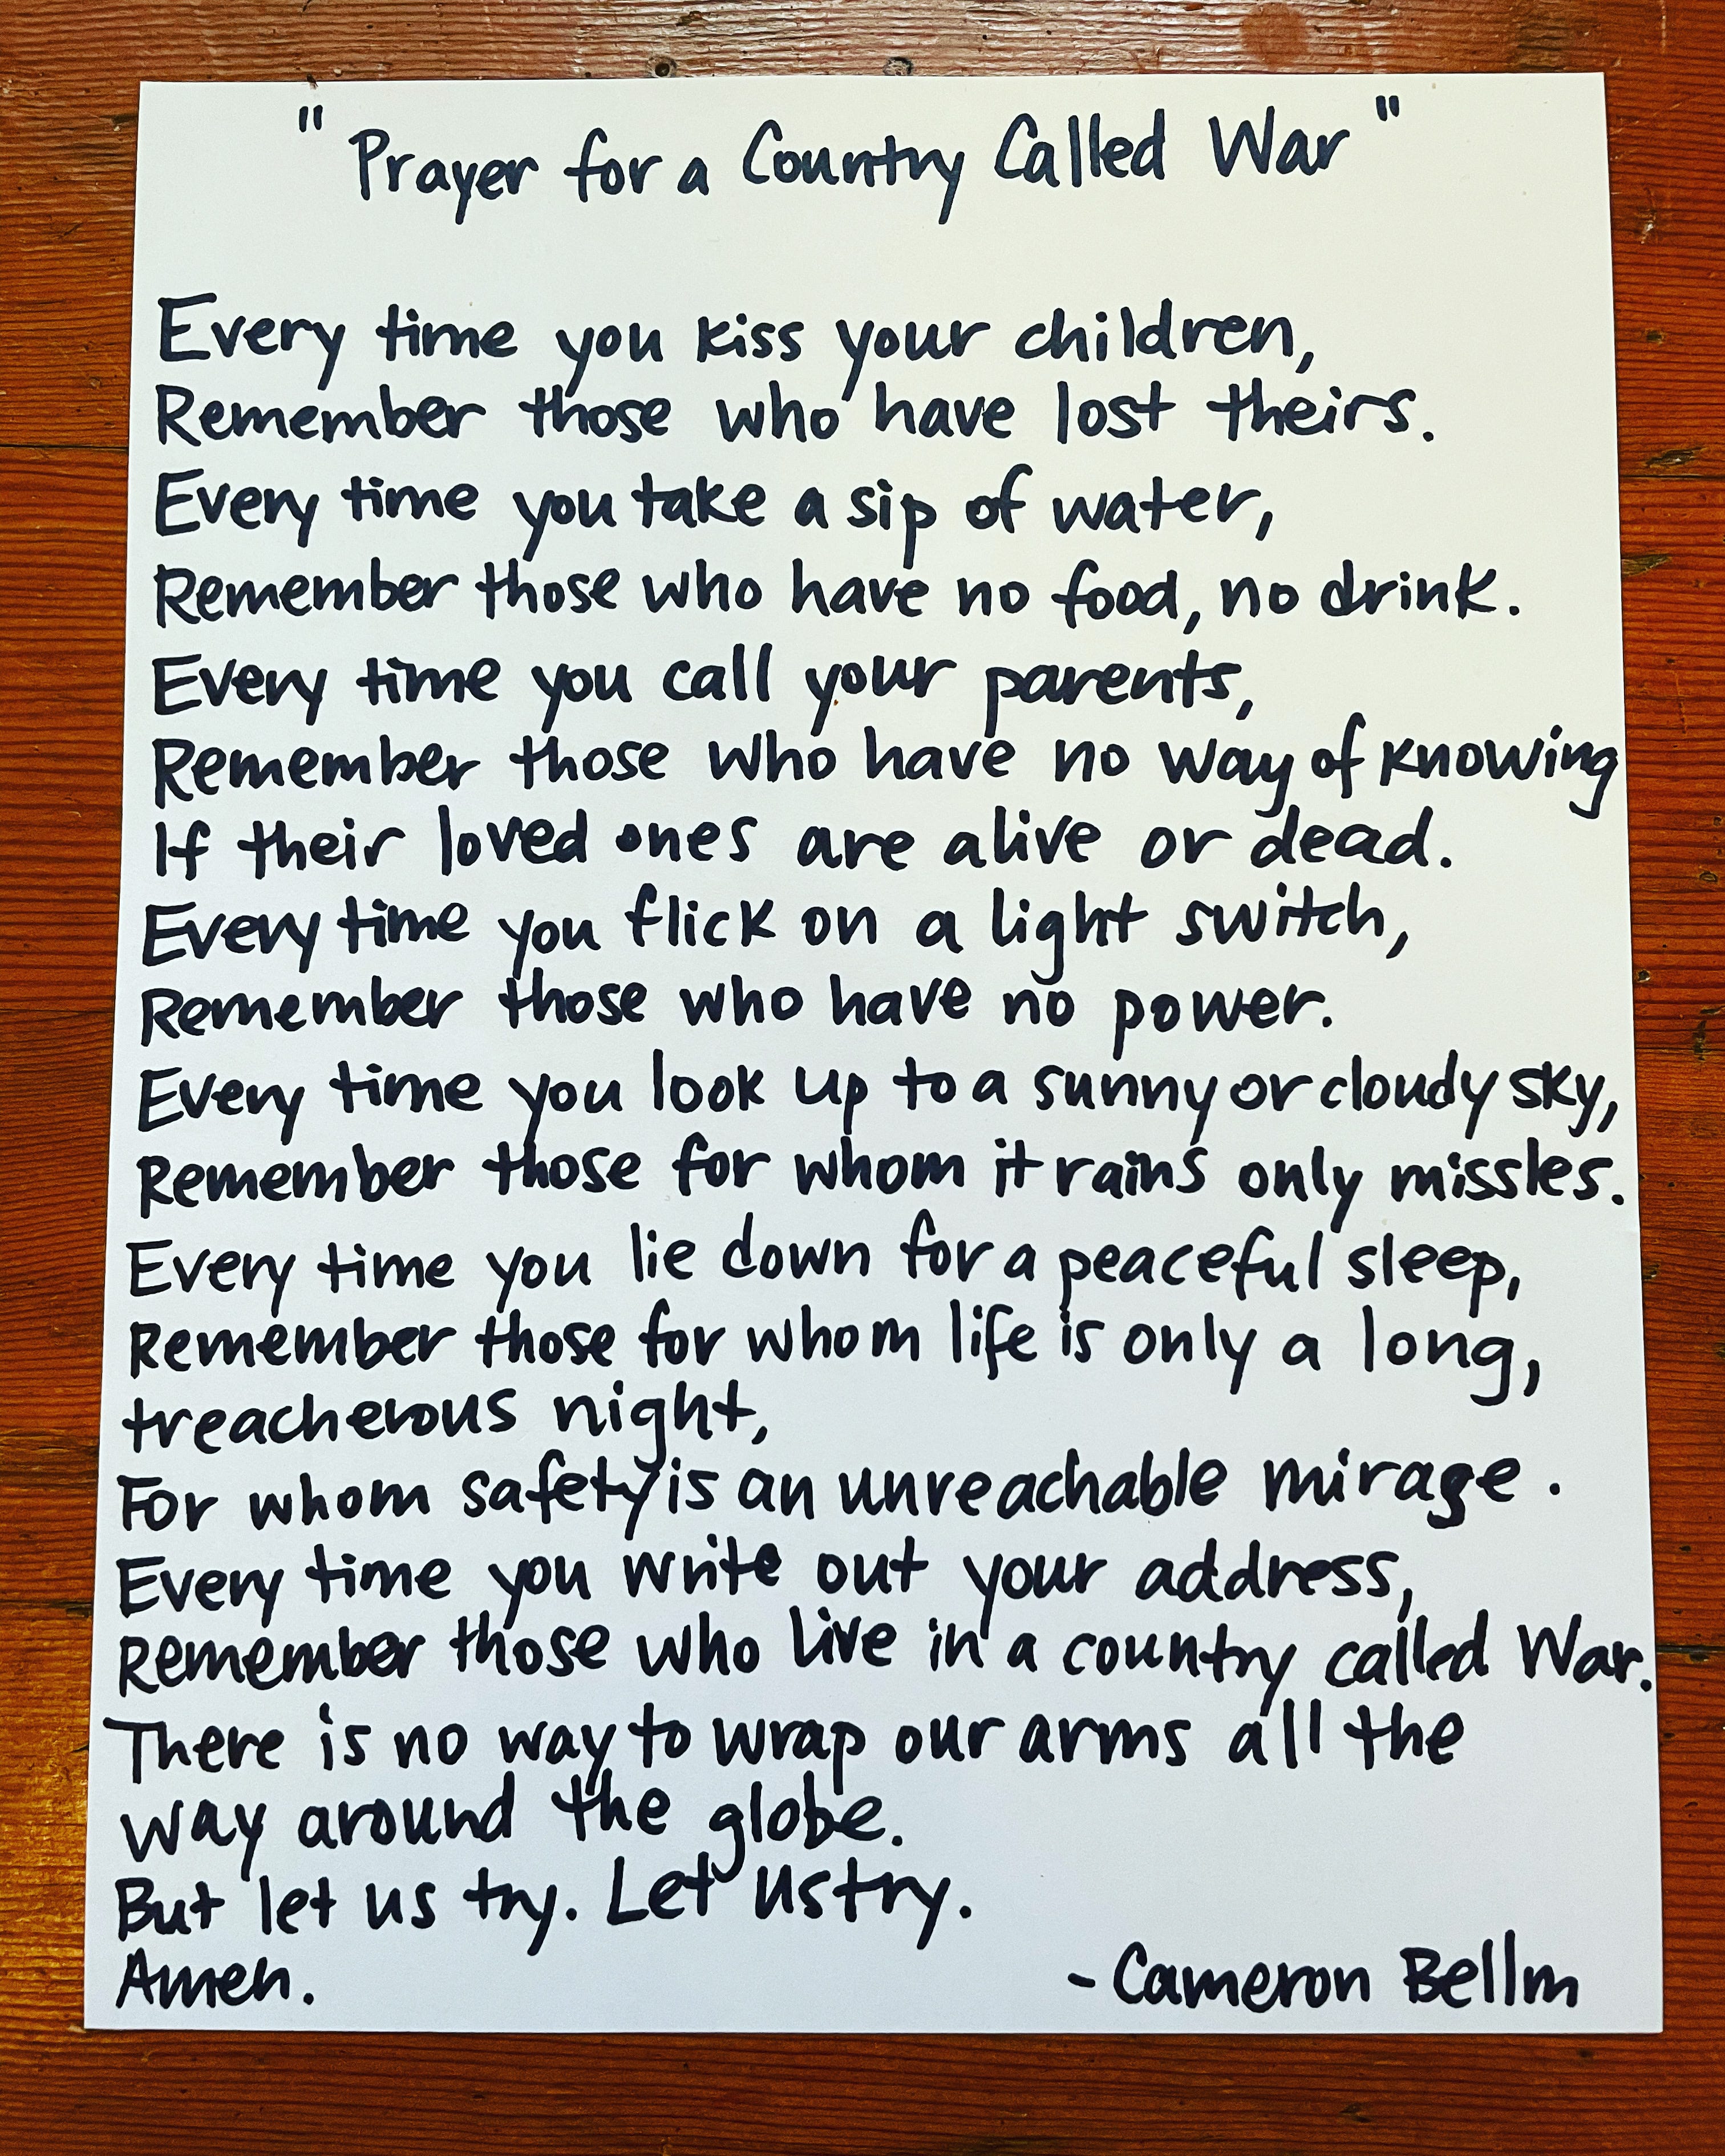 "Prayer for a Country Called War"
Every time you kiss your children,
Remember those who have lost theirs.
Every time you take a sip of water,
Remember those who have no food, no drink.
Every time you call your parents,
Remember those who have no way of knowing
If their loved ones are alive or dead.
Every time you flick on a light switch,
Remember those who have no power.
Every time you look up to a sunny or cloudy sky,
Remember those for whom it rains only missles.
Every time you lie down for a peaceful sleep,
Remember those for whom life is only a long,
treacherous night,
For whom safety is an unreachable mirage.
Every time you write out your address,
Remember those who live in a country called War.
There is no way to wrap our arms all the
way around the globe.
But let us try. Let us try.
Amen.
- Cameron Bellm